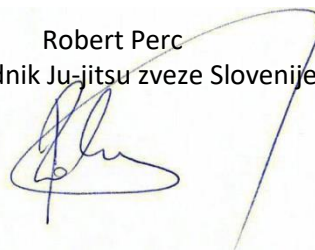 Robert Perc
dnik Ju-jitsu zveze Slovenije